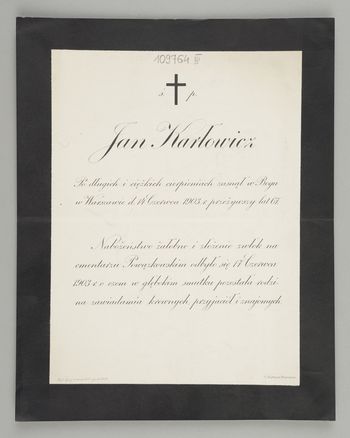 109764 III
ś. p.
Jan Karłowicz
Po długich i ciężkich cierpieniach zasnął w Bogu
w Warszawie d. 14 Czerwca 1903 r. przeżywszy lat 67.
Nabożeństwo żałobne i złożenie zwłok na
cmentarzu Powązkowskim odbyło się 17 Czerwca
1903 r. o czem w głębokim smutku pozostała rodzi-
na zawiadamia krewnych, przyjaciół i znajomych